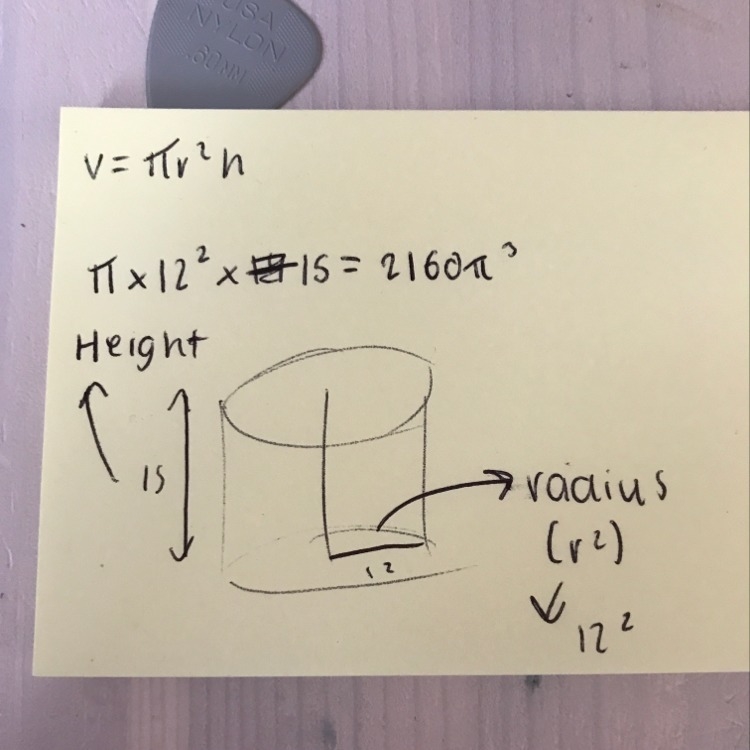 USA
NYLON
.60MM
V = πr²h
π × 12² × 15 = 2160π³
Height
15
radius
(r²)
12
12²